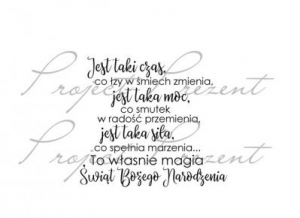 Jest taki czas,
co łzy w śmiech zmienia,
jest taka moc,
co smutek
w radość przemienia,
jest taka siła,
co spełnia marzenia...
To właśnie magia
Świąt Bożego Narodzenia
Project Prezent
Project Prezent